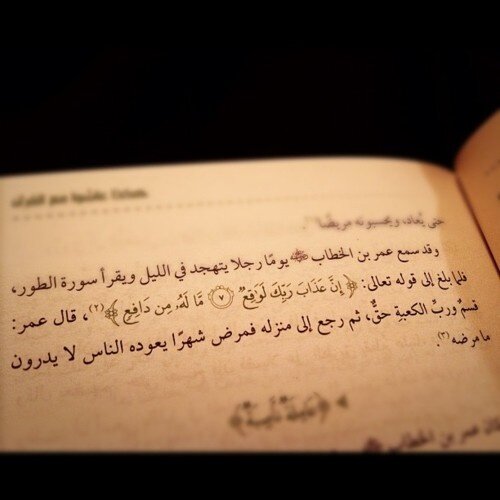 حتى يُعاد، ويحسبونه مريضًا
وقد سمع عمر بن الخطاب ﷺ يومًا رجلا يتهجد في الليل ويقرأ سورة الطور،
فلما بلغ إلى قوله تعالى: ﴿إِنَّ عَذَابَ رَبِّكَ لَوَاقِعٌ ۝٧ مَّا لَهُۥ مِن دَافِعٍ﴾(٢)، قال عمر:
قسمٌ وربِّ الكعبةِ حقٌّ، ثم رجع إلى منزله فمرض شهرًا يعوده الناس لا يدرون
ما مرضه(٣).
عمر بن الخطاب